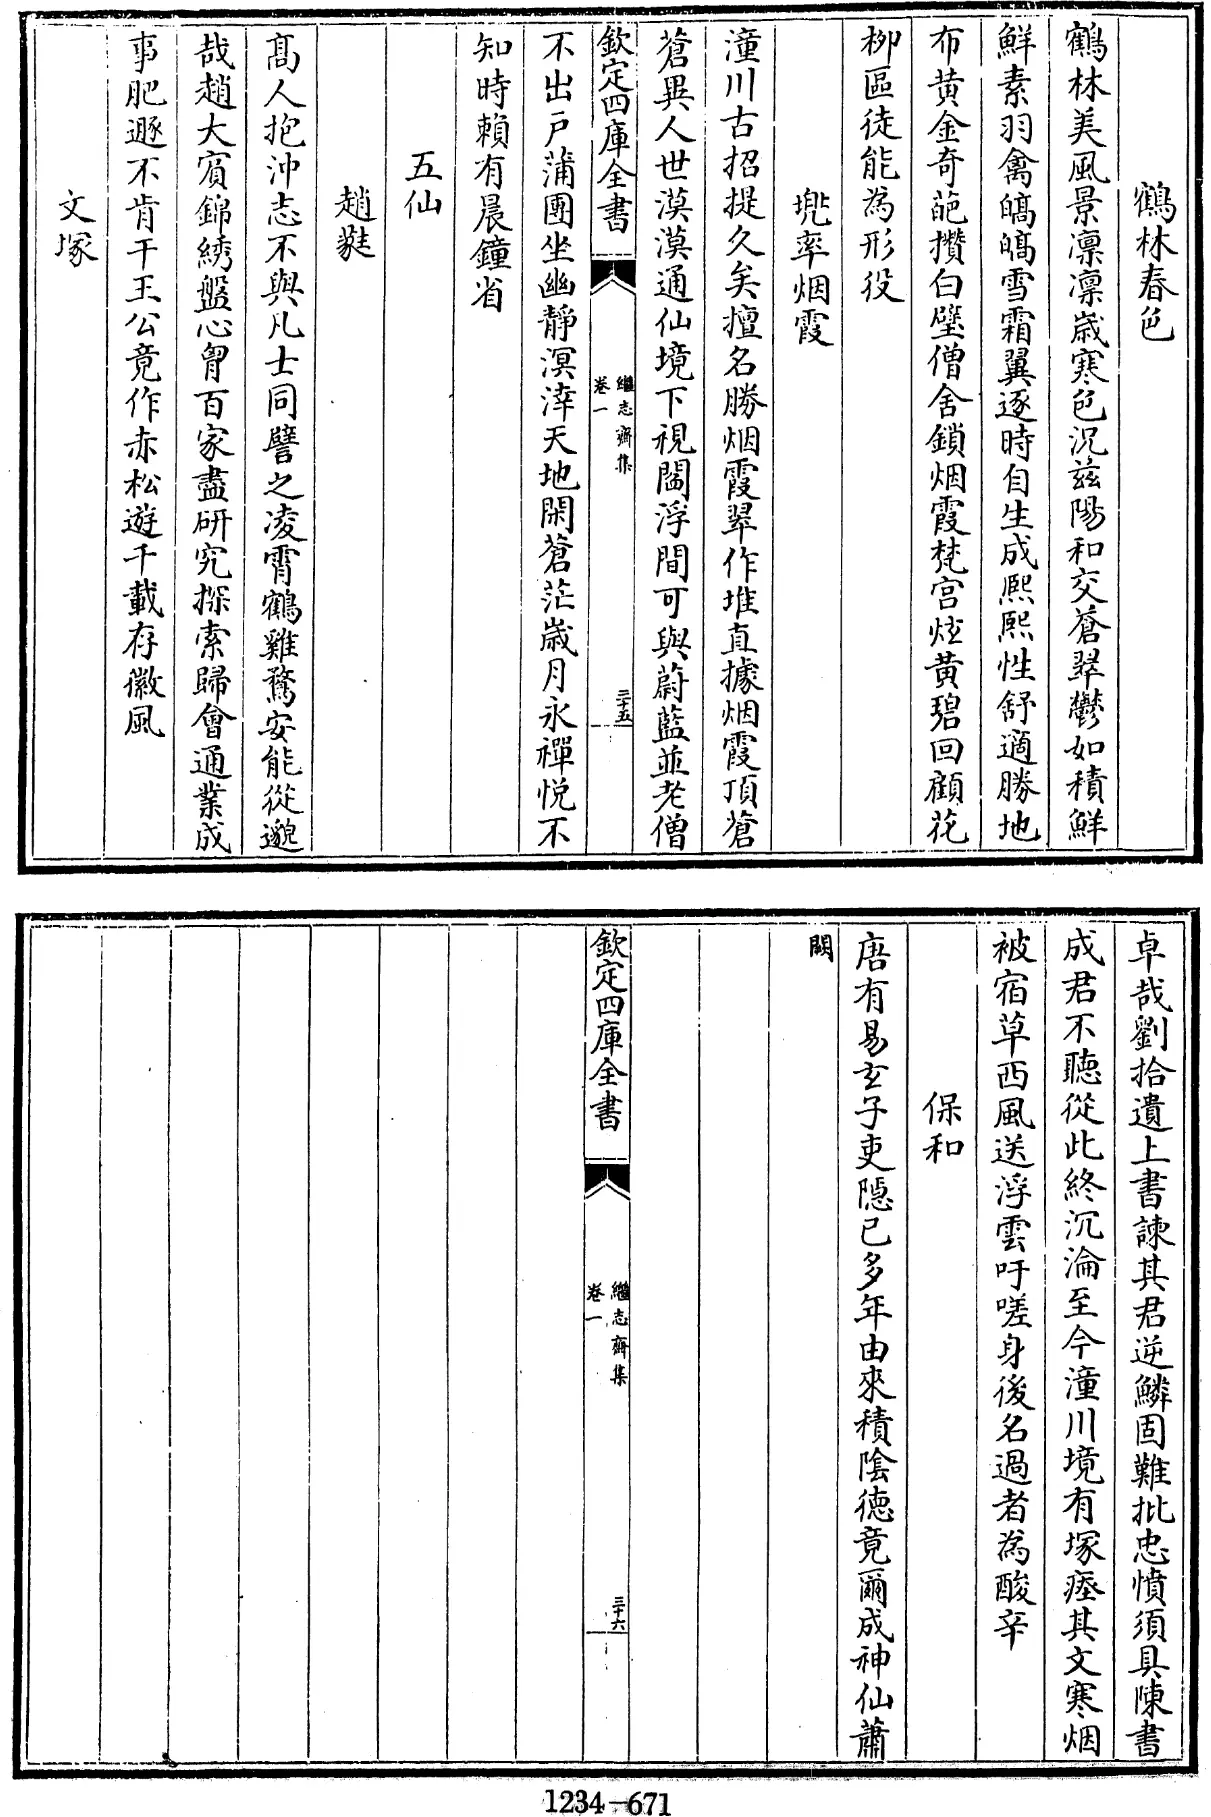 鶴林春色
鶴林美風景凛凛歲寒色沉茲陽和交蒼翠鬱如積鮮
鮮素羽禽皜皜雪霜翼逐時自生成熈熈性舒適勝地
布黄金奇葩攢白璧僧舍鎖烟霞梵宫炫黄碧回顧花
栁區徒能為形役
兠率烟霞
潼川古招提久矣擅名勝烟霞翠作堆直據烟霞頂蒼
蒼異人世漠漠通仙境下視閻浮間可與蔚藍並老僧
欽定四庫全書
繼志齋集
卷一
三十五
不出户蒲團坐幽靜溟涬天地閑蒼茫歲月永禪悅不
知時賴有晨鐘省
五仙
趙蕤
髙人抱沖志不與凡士同譬之凌霄鶴雞鶩安能從邈
哉趙大賔錦綉盤心胷百家盡研究探索歸會通業成
事肥遯不肯干王公竟作赤松遊千載存徽風
文塚
卓哉劉拾遺上書諫其君逆鱗固難批忠憤須具陳書
成君不聽從此終沉淪至今潼川境有塚瘞其文寒烟
被宿草西風送浮雲吁嗟身後名過者為酸辛
保和
唐有易玄子吏隠已多年由來積隂德竟爾成神仙蕭
闕
欽定四庫全書
繼志齋集
卷一
三十六
1234-671